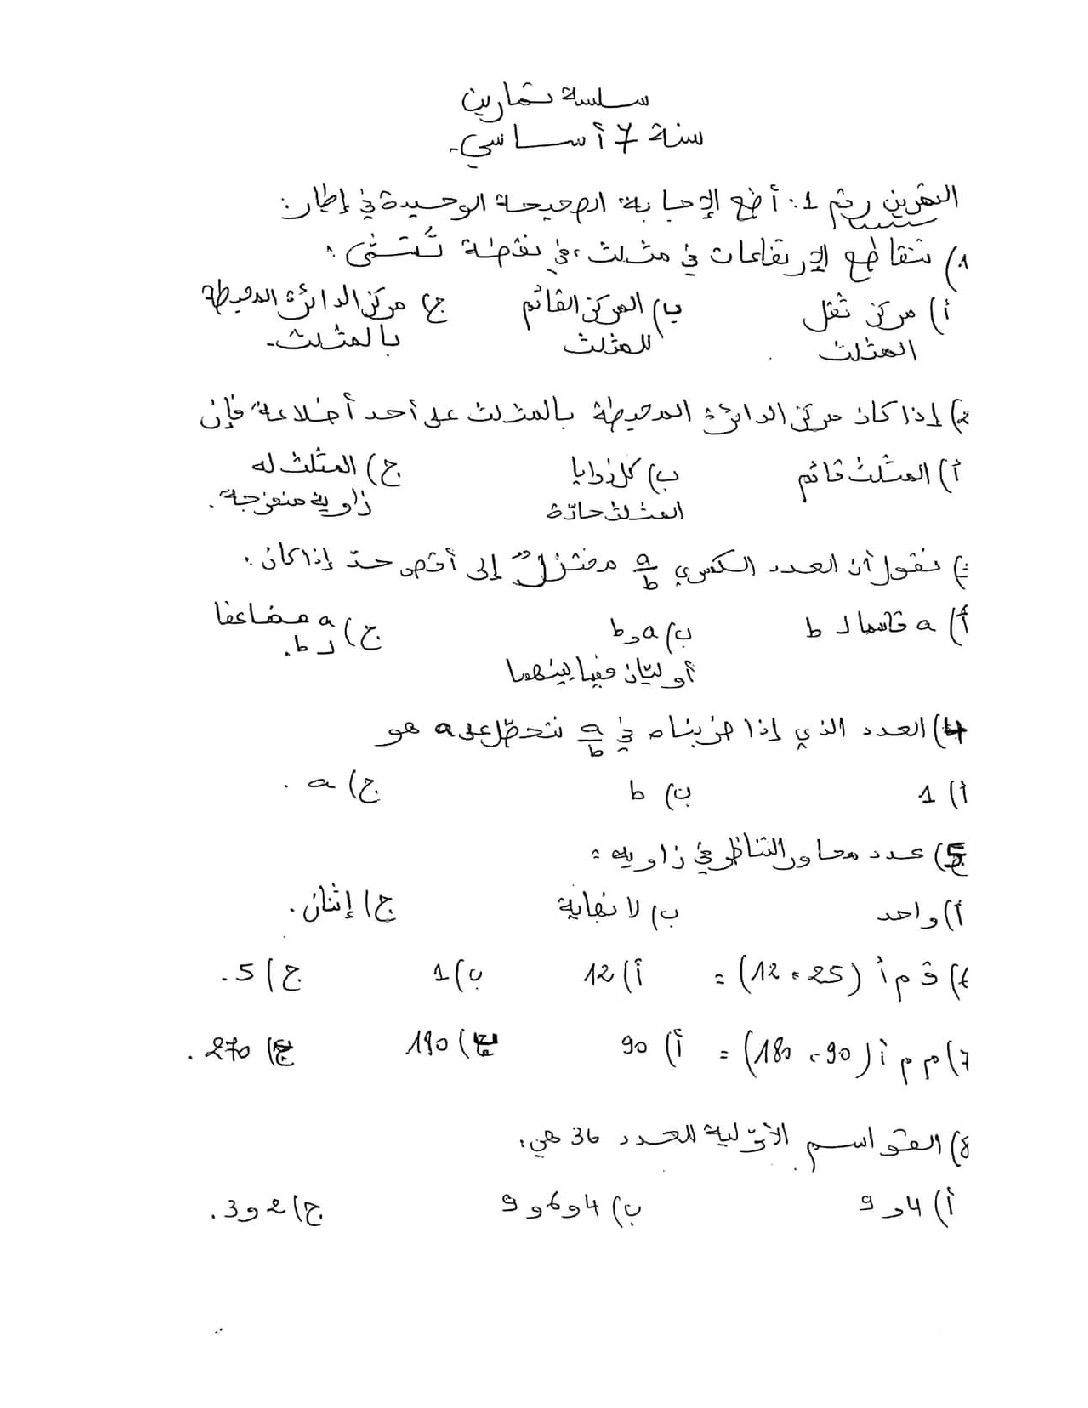 سلسة تمارين
سنة 7 أساسي.
التمرين رقم 1: أضع الإجابة الصحيحة الوحيدة في إطار:
1) تتقاطع الإرتفاعات في مثلث، في نقطة تُسمّى:
أ) مركز ثقل المثلث ب) المركز القائم للمثلث ج) مركز الدائرة المحيطة بالمثلث.
2) إذا كان مركز الدائرة المحيطة بالمثلث على أحد أضلاعه فإن
أ) المثلث قائم ب) كل زوايا المثلث حادة ج) المثلث له زاوية منفرجة.
) نقول أن العدد الكسري a/b مختزل إلى أقصى حدّ إذا كان:
أ) a قاسما لـ b ب) a و b أوليان فيما بينهما ج) a مضاعفا لـ b.
4) العدد الذي إذا ضربناه في a/b نتحصّل على a هو
أ) 1 ب) b ج) a.
5) عدد محاور التناظر في زاوية:
أ) واحد ب) لا نهاية ج) إثنان.
6) ق م أ (25، 12) = أ) 12 ب) 1 ج) 5.
7) م م أ (90، 180) = أ) 90 ب) 180 ج) 270.
8) القواسم الأوّلية للعدد 36 هي:
أ) 4 و 9 ب) 4 و 6 و 9 ج) 2 و 3.